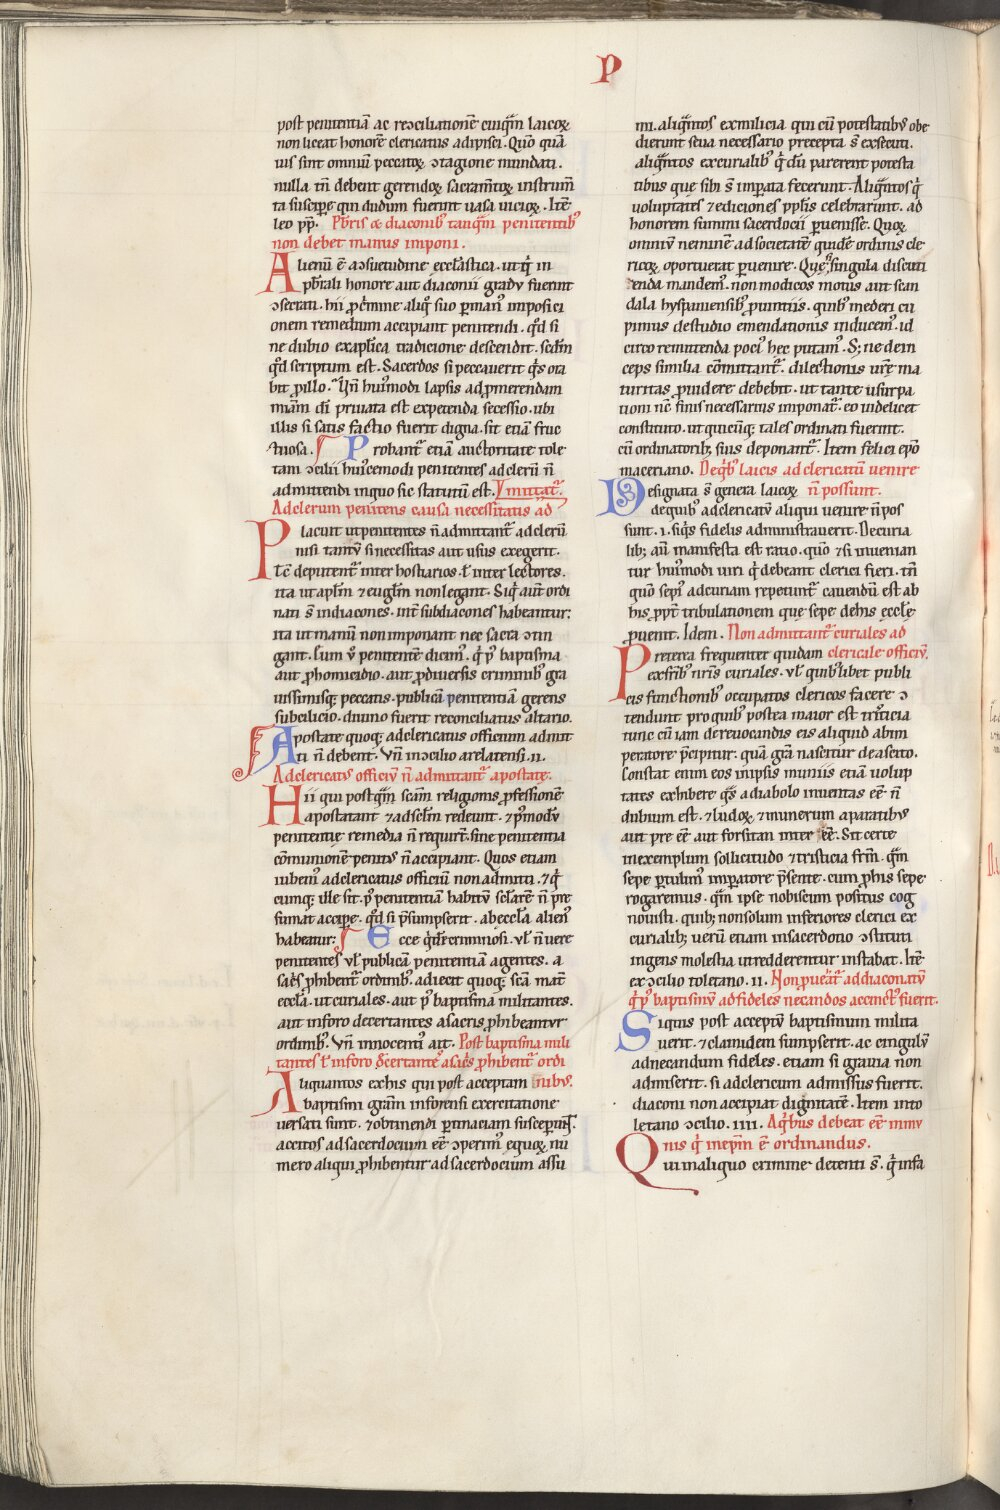 P
post penitentiā ac reↄciliationē cuiq̄m laicoꝝ
non liceat honorē clericatus adipisci. Quo quā
uis sint omniū peccatoꝝ ↄtagione mundati.
nulla tn̄ debent gerendoꝝ sacram̄toꝝ instrum̄
ta suscip̲e qui dudum fuerint uasa uicioꝝ. Itē
leo pp̄. P̄bris & diaconib' tanq̄m penitentib'
non debet manus imponi.
Alienū ē a ↄsuetudine eccl̄astica. ut q̄ in
p̄br̄ali honore aut diaconii gradu fuerint
ↄsecrati. hii ꝓ crimine aliq̊ suo per man' imposici
onem remedium accipiant penitendi. q̊d si
ne dubio ex apl̄ica tradicione descendit. scd̄m
q̊d scriptum est. Sacerdos si peccauerit q̄s ora
bit ꝓ illo. Vn̄ hui'modi lapsis ad ꝓmerendam
mīam dī priuata est expetenda secessio. ubi
illis si satis factio fuerit digna. sit etiā fruc
tuosa. Probant̄ etiā auctoritate tole
tani ↄcilii hui'cemodi penitentes ad clerū n̄
admittendi in quo sic statutū est. mittat̄.
Ad clerum penitens causa necessitatis ad
Placuit ut penitentes n̄ admittant̄ ad clerū
nisi tantū si necessitas aut usus exegerit.
Tc̄ deputent̄ inter hostiarios. ł inter lectores.
ita ut apl̄m ⁊ eugl̄m non legant. Siq̄ aut̄ ordi
nati s̄ in diacones. int̄ subdiacones habeantur.
ita ut manū non imponant nec sacra ↄtin
gant. Eum ū penitentē dicim'. q̄ p' baptisma
aut ꝓ homicidio. aut ꝓ diuersis criminib' gra
uissimisq; peccatis. publicā penitentiā gerens
sub cilicio. diuino fuerit reconciliatus altario.
Apostate quoq; ad clericatus officium admit
ti n̄ debent. Vn̄ in ↄcilio arelatensi. ii.
Ad clericatis officiū n̄ admittant̄ apostate.
Hii qui postq̄m sc̄am religionis ꝓfessionē
apostatant ⁊ ad scl̄m redeunt. ⁊ p'modū
penitentie remedia n̄ requirt̄. sine penitentia
cōmunionē penit' n̄ accipiant. Quos etiam
iubem' ad clericatus officiū non admitti. ⁊ q̄
cumq; ille sit. p' penitentiā habitū sclarē n̄ pre
sumat accip̲e. q̊d si p̄sumpserit. ab eccl̄a alien'
habeatur. Ecce q̊d criminosi. ul̄ n̄ uere
penitentes ul̄ publicā penitentiā agentes. a
sac̄s ꝓhibent̄ ordinib'. adiecit quoq; sc̄a mat̄
eccl̄a. ut curiales. aut p' baptisma militantes.
aut in foro decertantes a sacris ꝓhibeantur
ordinib'. Vn̄ innocenti' ait. Post baptisma mili
tantes ł in foro d̄certante' a sac̄s ꝓhibent̄ ordi
Aliquantos ex his qui post acceptam nibus.
baptismi grām in forensi exercitatione
uersati sunt. ⁊ obtinendi p̲tinaciam suscep̲unt̄.
accitos ad sacerdocium eē ↄperim' e quoꝝ nu
mero aliqui ꝓhibentur ad sacerdocium assu
mi. aliq̄ntos ex milicia qui cū potestatib' obe
dierunt seua necessario precepta s̄ exsecuti.
aliq̄ntos ex curialib' q̄ dū parerent potesta
tibus que sibi s̄ imp̲ata fecerunt. Aliq̄ntos q̄
uoluptates ⁊ ediciones pp̄lis celebrarunt. ad
honorem summi sacerdocii p̲uenisse. Quoꝝ
omniū neminē ad societatē quidē ordinis cle
ricoꝝ oportuerat p̲uenire. Que si singula discuti
enda mandem'. non modicos motus aut scan
dala hyspaniensib' ꝓuintiis. quib' mederi cu
pimus de studio emendationis inducem'. id
circo remittenda poci' hec putam'. S; ne dein
ceps similia cōmittant̄. dilectionis ur̄e ma
turitas ꝓuidere debebit. ut tante usurpa
tioni nc̄ finis necessarius imponat̄. eo uidelicet
constituto. ut quicūq; tales ordinati fuerint.
cū ordinatorib; suis deponant̄. Item felici ep̄o
maceriano. De q̄b' laicis ad clericatū uenire
Designata s̄ genera laicoꝝ n̄ possunt.
de quib' ad clericatū aliqui uenire n̄ pos
sunt. i. siq̄s fidelis administrauerit. De curia
lib; aū manifesta est ratio. quō ⁊ si inuenian
tur hui'modi uiri q̄ debeant clerici fieri. tn̄
quō sepi' ad curiam repetunt̄ cauendū est ab
his ꝓpt̄ tribulationem que sepe de his eccl̄e
ꝓuenit. Idem. Non admittant̄ curiales ad
Preterea frequenter quidam clericale officiū.
ex frīb' nr̄is curiales. ul̄ quib'libet publi
cis functionib' occupatos clericos facere ↄ
tendunt pro quib' postea maior est tristicia
tunc cū iam de reuocandis eis aliquid ab im
peratore p̄cipitur. quā grā nascitur de ascito.
Constat enim eos in ipsis muniis etiā uolup
tates exhibere q̄s a diabolo inuentas eē n̄
dubium est. ⁊ ludoꝝ ⁊ munerum aparatib'
aut pre eē aut forsitan inter eē. Sit certe
in exemplum sollicitudo ⁊ tristicia frm̄. q̄m
sepe p̲tulim' imp̲atore p̄sente. cum ꝓ his sepe
rogaremus. q̄m ipse nobiscum positus cog
nouisti. quib; non solum inferiores clerici ex
curialib; uerū etiam in sacerdotio ↄstituti
ingens molestia ut redderentur instabat. Itē
ex ↄcilio toletano. ii. Non p̲ueāt ad diaconatū
q̄ p' baptismū ad fideles necandos accincti fuerīt.
Siquis post acceptū baptismum milita
uerit. ⁊ clamidem sumpserit. ac cingulū
ad necandum fideles. etiam si grauia non
admiserit. si ad clericum admissus fuerit.
diaconi non accipiat dignitatē. Item in to
letano ↄcilio. iiii. A q̄bus debeat eē immu
nis q̄ in ep̄m ē ordinandus.
Qui in aliquo crimine detenti s̄. q̄ infa